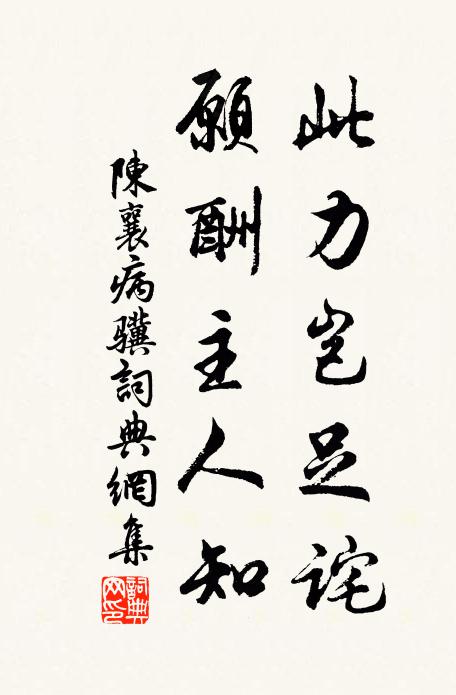 此力岂足诧
願酬主人知
陳襄病骥詞典網集
詞典网印